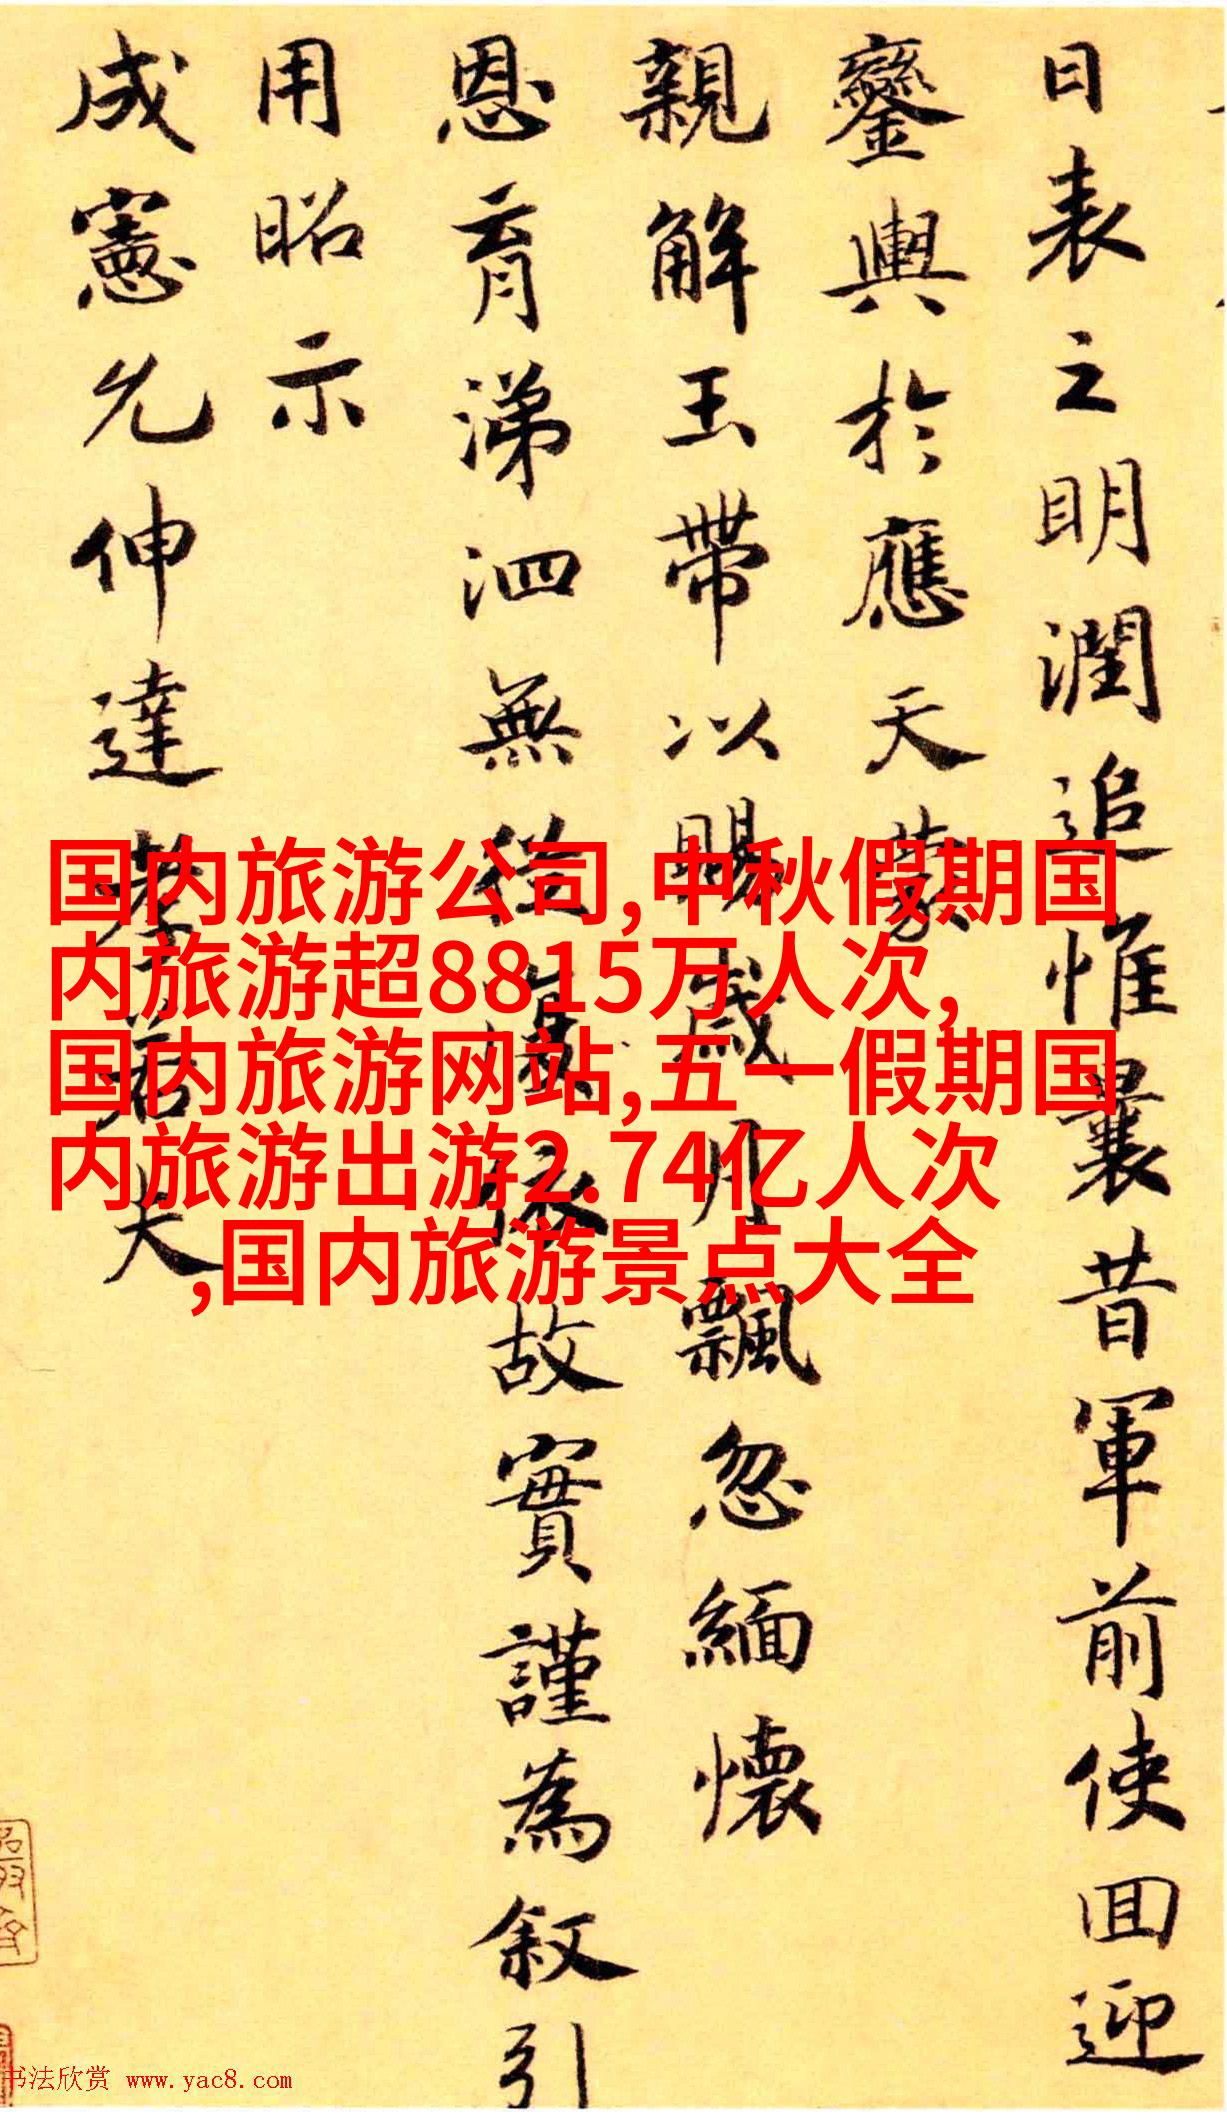 日表之明潤追惟曩昔軍前使回迎
鑾輿於應天蒙
親解玉帶以賜歲月飄忽緬懷
恩育涕泗無從
故實謹為叙引
用昭示
成憲允伸達孝若夫
国内旅游公司,中秋假期国
内旅游超8815万人次,
国内旅游网站,五一假期国
内旅游出游2.74亿人次
,国内旅游景点大全
书法欣赏 www.yac8.com